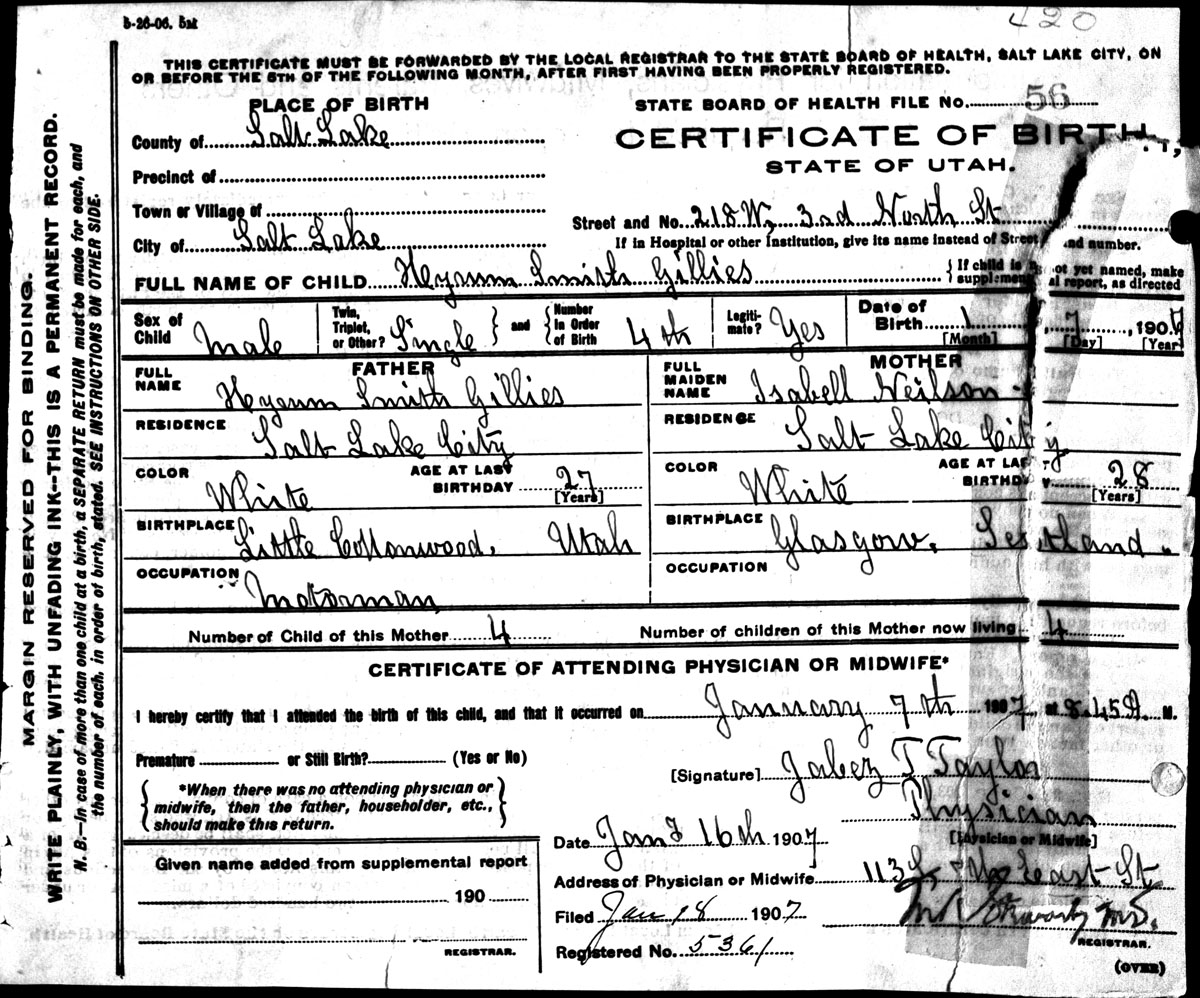 5-26-06. 5M
420
THIS CERTIFICATE MUST BE FORWARDED BY THE LOCAL REGISTRAR TO THE STATE BOARD OF HEALTH, SALT LAKE CITY, ON
OR BEFORE THE 5TH OF THE FOLLOWING MONTH, AFTER FIRST HAVING BEEN PROPERLY REGISTERED.
MARGIN RESERVED FOR BINDING.
WRITE PLAINLY, WITH UNFADING INK--THIS IS A PERMANENT RECORD.
N. B.—In case of more than one child at a birth, a SEPARATE RETURN must be made for each, and
the number of each, in order of birth, stated. SEE INSTRUCTIONS ON OTHER SIDE.
PLACE OF BIRTH
County of Salt Lake
Precinct of
Town or Village of
City of Salt Lake
STATE BOARD OF HEALTH FILE No. 56
CERTIFICATE OF BIRTH,
STATE OF UTAH.
Street and No. 218 W, 3rd North St
If in Hospital or other Institution, give its name instead of Street and number.
FULL NAME OF CHILD Heyrum Smith Gillies
{ If child is not yet named, make
supplemental report, as directed
Sex of Child Male
Twin, Triplet, or Other? Single } and { Number in Order of Birth 4th
Legiti-mate? Yes
Date of Birth 1 7, 1907
[Month] [Day] [Year]
FATHER
FULL NAME Heyrum Smith Gillies
RESIDENCE Salt Lake City
COLOR White AGE AT LAST BIRTHDAY 27 [Years]
BIRTHPLACE Little Cottonwood, Utah
OCCUPATION Motorman
MOTHER
FULL MAIDEN NAME Isabell Neilson
RESIDENCE Salt Lake City
COLOR White AGE AT LAST BIRTHDAY 28 [Years]
BIRTHPLACE Glasgow, Scotland
OCCUPATION
Number of Child of this Mother 4 Number of children of this Mother now living 4
CERTIFICATE OF ATTENDING PHYSICIAN OR MIDWIFE*
I hereby certify that I attended the birth of this child, and that it occurred on January 7th 1907, at 8.45 A. M.
Premature or Still Birth? (Yes or No)
{ *When there was no attending physician or
midwife, then the father, householder, etc.,
should make this return. }
[Signature] Jabez T Taylor
Physician
[Physician or Midwife]
Date Jany 16th 1907
Address of Physician or Midwife 113 East St
Filed Jan 18 1907
M.D.
REGISTRAR.
Registered No. 5361
Given name added from supplemental report
190
REGISTRAR.
(OVER)